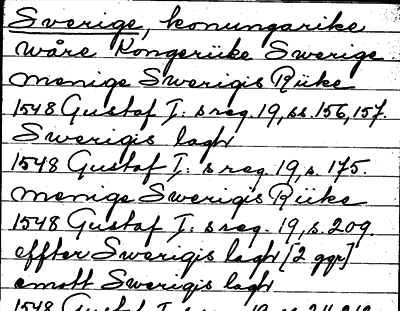 Sverige, konungarike
wåre Kongerüke Swerige.
menige Swerigis Rüke
1548 Gustaf I: s reg. 19, ss. 156, 157.
Swerigis lagh
1548 Gustaf I: s reg. 19, s. 175.
menige Swerigis Rüke
1548 Gustaf I: s reg. 19, s. 209.
effter Swerigis lagh [2 ggr]
emott Swerigis lagh
1548 Gustaf I: s reg. 19